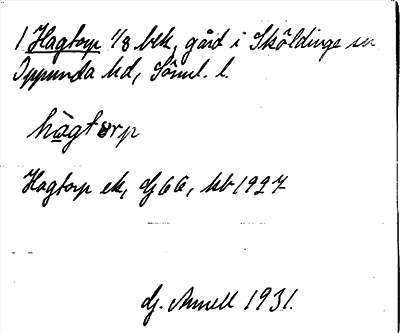 1 Hagtorp 1/8 blk, gård i Sköldinge sn
Oppunda hd, Söml. l.
hàgtorp
Hagtorp ek, G6a, kb 1927
G. Annell 1931.